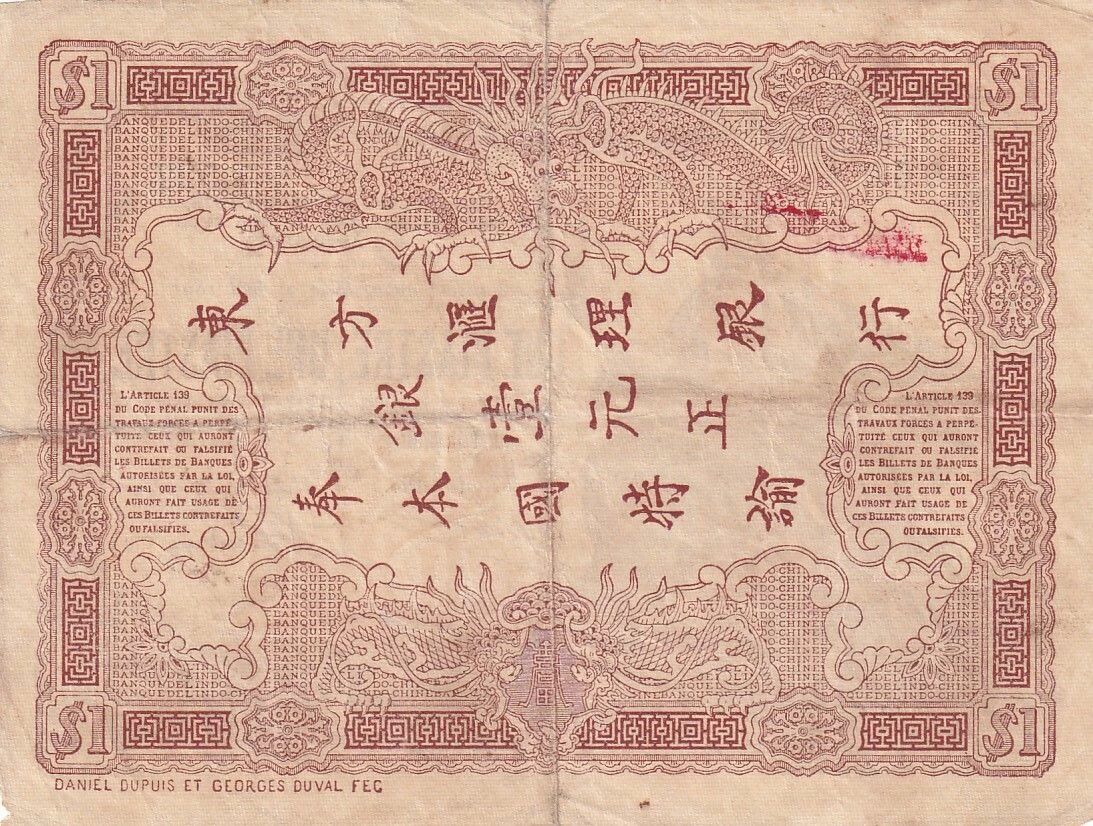 $1
$1
BANQUE DE L'INDO-CHINE
東方滙理銀行
銀壹元正
奉本國特諭
L'ARTICLE 139
DU CODE PÉNAL PUNIT DES
TRAVAUX FORCÉS A PERPÉ-
TUITÉ CEUX QUI AURONT
CONTREFAIT OU FALSIFIÉ
LES BILLETS DE BANQUES
AUTORISÉES PAR LA LOI,
AINSI QUE CEUX QUI
AURONT FAIT USAGE DE
CES BILLETS CONTREFAITS
OU FALSIFIES.
L'ARTICLE 139
DU CODE PÉNAL PUNIT DES
TRAVAUX FORCÉS A PERPÉ-
TUITÉ CEUX QUI AURONT
CONTREFAIT OU FALSIFIÉ
LES BILLETS DE BANQUES
AUTORISÉES PAR LA LOI,
AINSI QUE CEUX QUI
AURONT FAIT USAGE DE
CES BILLETS CONTREFAITS
OU FALSIFIES.
$1
$1
DANIEL DUPUIS ET GEORGES DUVAL FEC